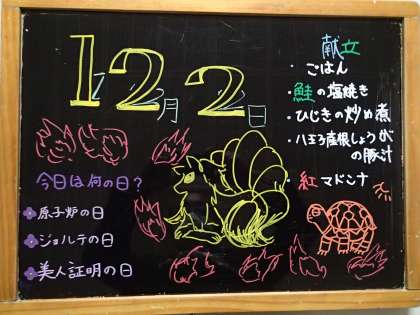 12月2日
献立
・ごはん
・鮭の塩焼き
・ひじきの炒め煮
・八王子産根しょうが
の豚汁
・紅マドンナ
今日は何の日？
原子炉の日
ジョルテの日
美人証明の日